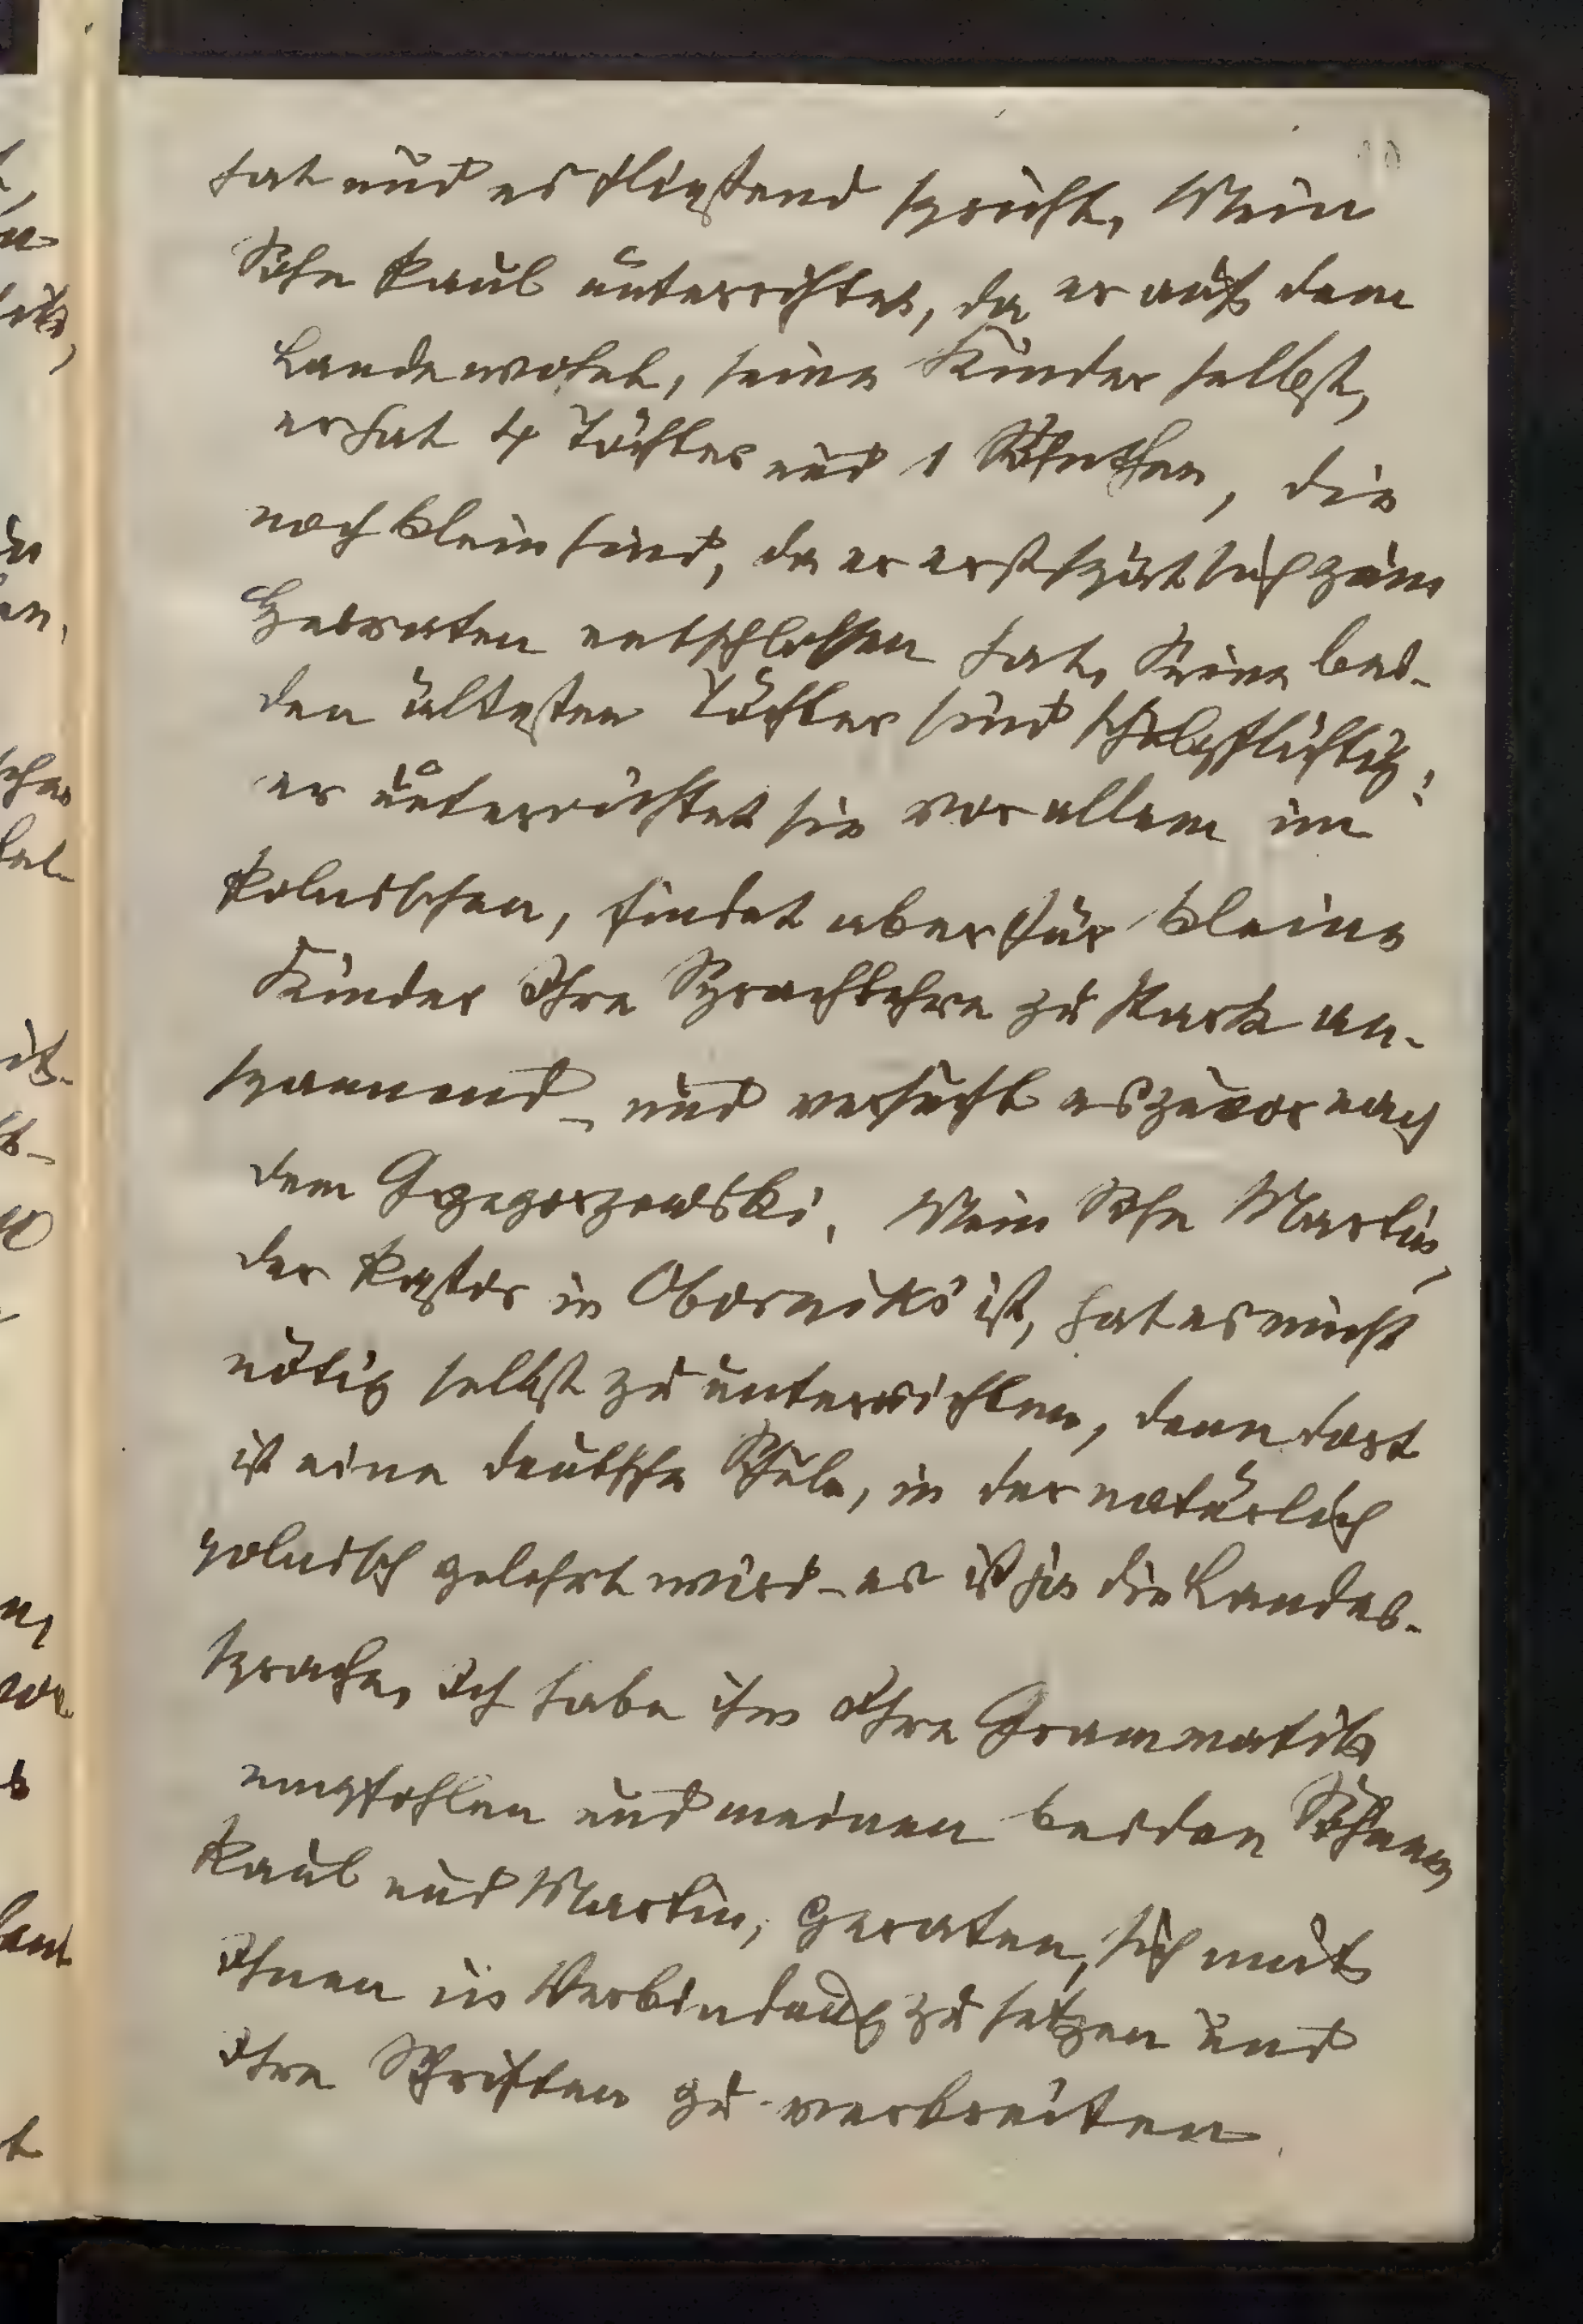 hat und es fließend spricht. Mein
Sohn Paul unterrichtet, da er auf dem
Lande wohnt, seine Kinder selbst,
er hat 4 Töchter und 1 Söhnchen, die
noch klein sind, da er erst spät sich zum
Heiraten entschlossen hat. Seine bei-
den ältesten Töchter sind schulpflichtig;
er unterrichtet sie vor allem im
Polnischen, findet aber für kleine
Kinder Ihre Sprachlehre zu stark an-
spannend – und versucht es zuvor nach
dem Grzegorzewski. Mein Sohn Martin,
der Pastor in Oborniki ist, hat es nicht
nötig selbst zu unterrichten, denn dort
ist eine deutsche Schule, in der natürlich
polnisch gelehrt wird – es ist ja die Landes-
sprache. Ich habe ihm Ihre Grammatik
empfohlen und meinen beiden Söhnen,
Paul und Martin, geraten, sich mit
Ihnen in Verbindung zu setzen und
Ihre Schriften zu verbreiten.